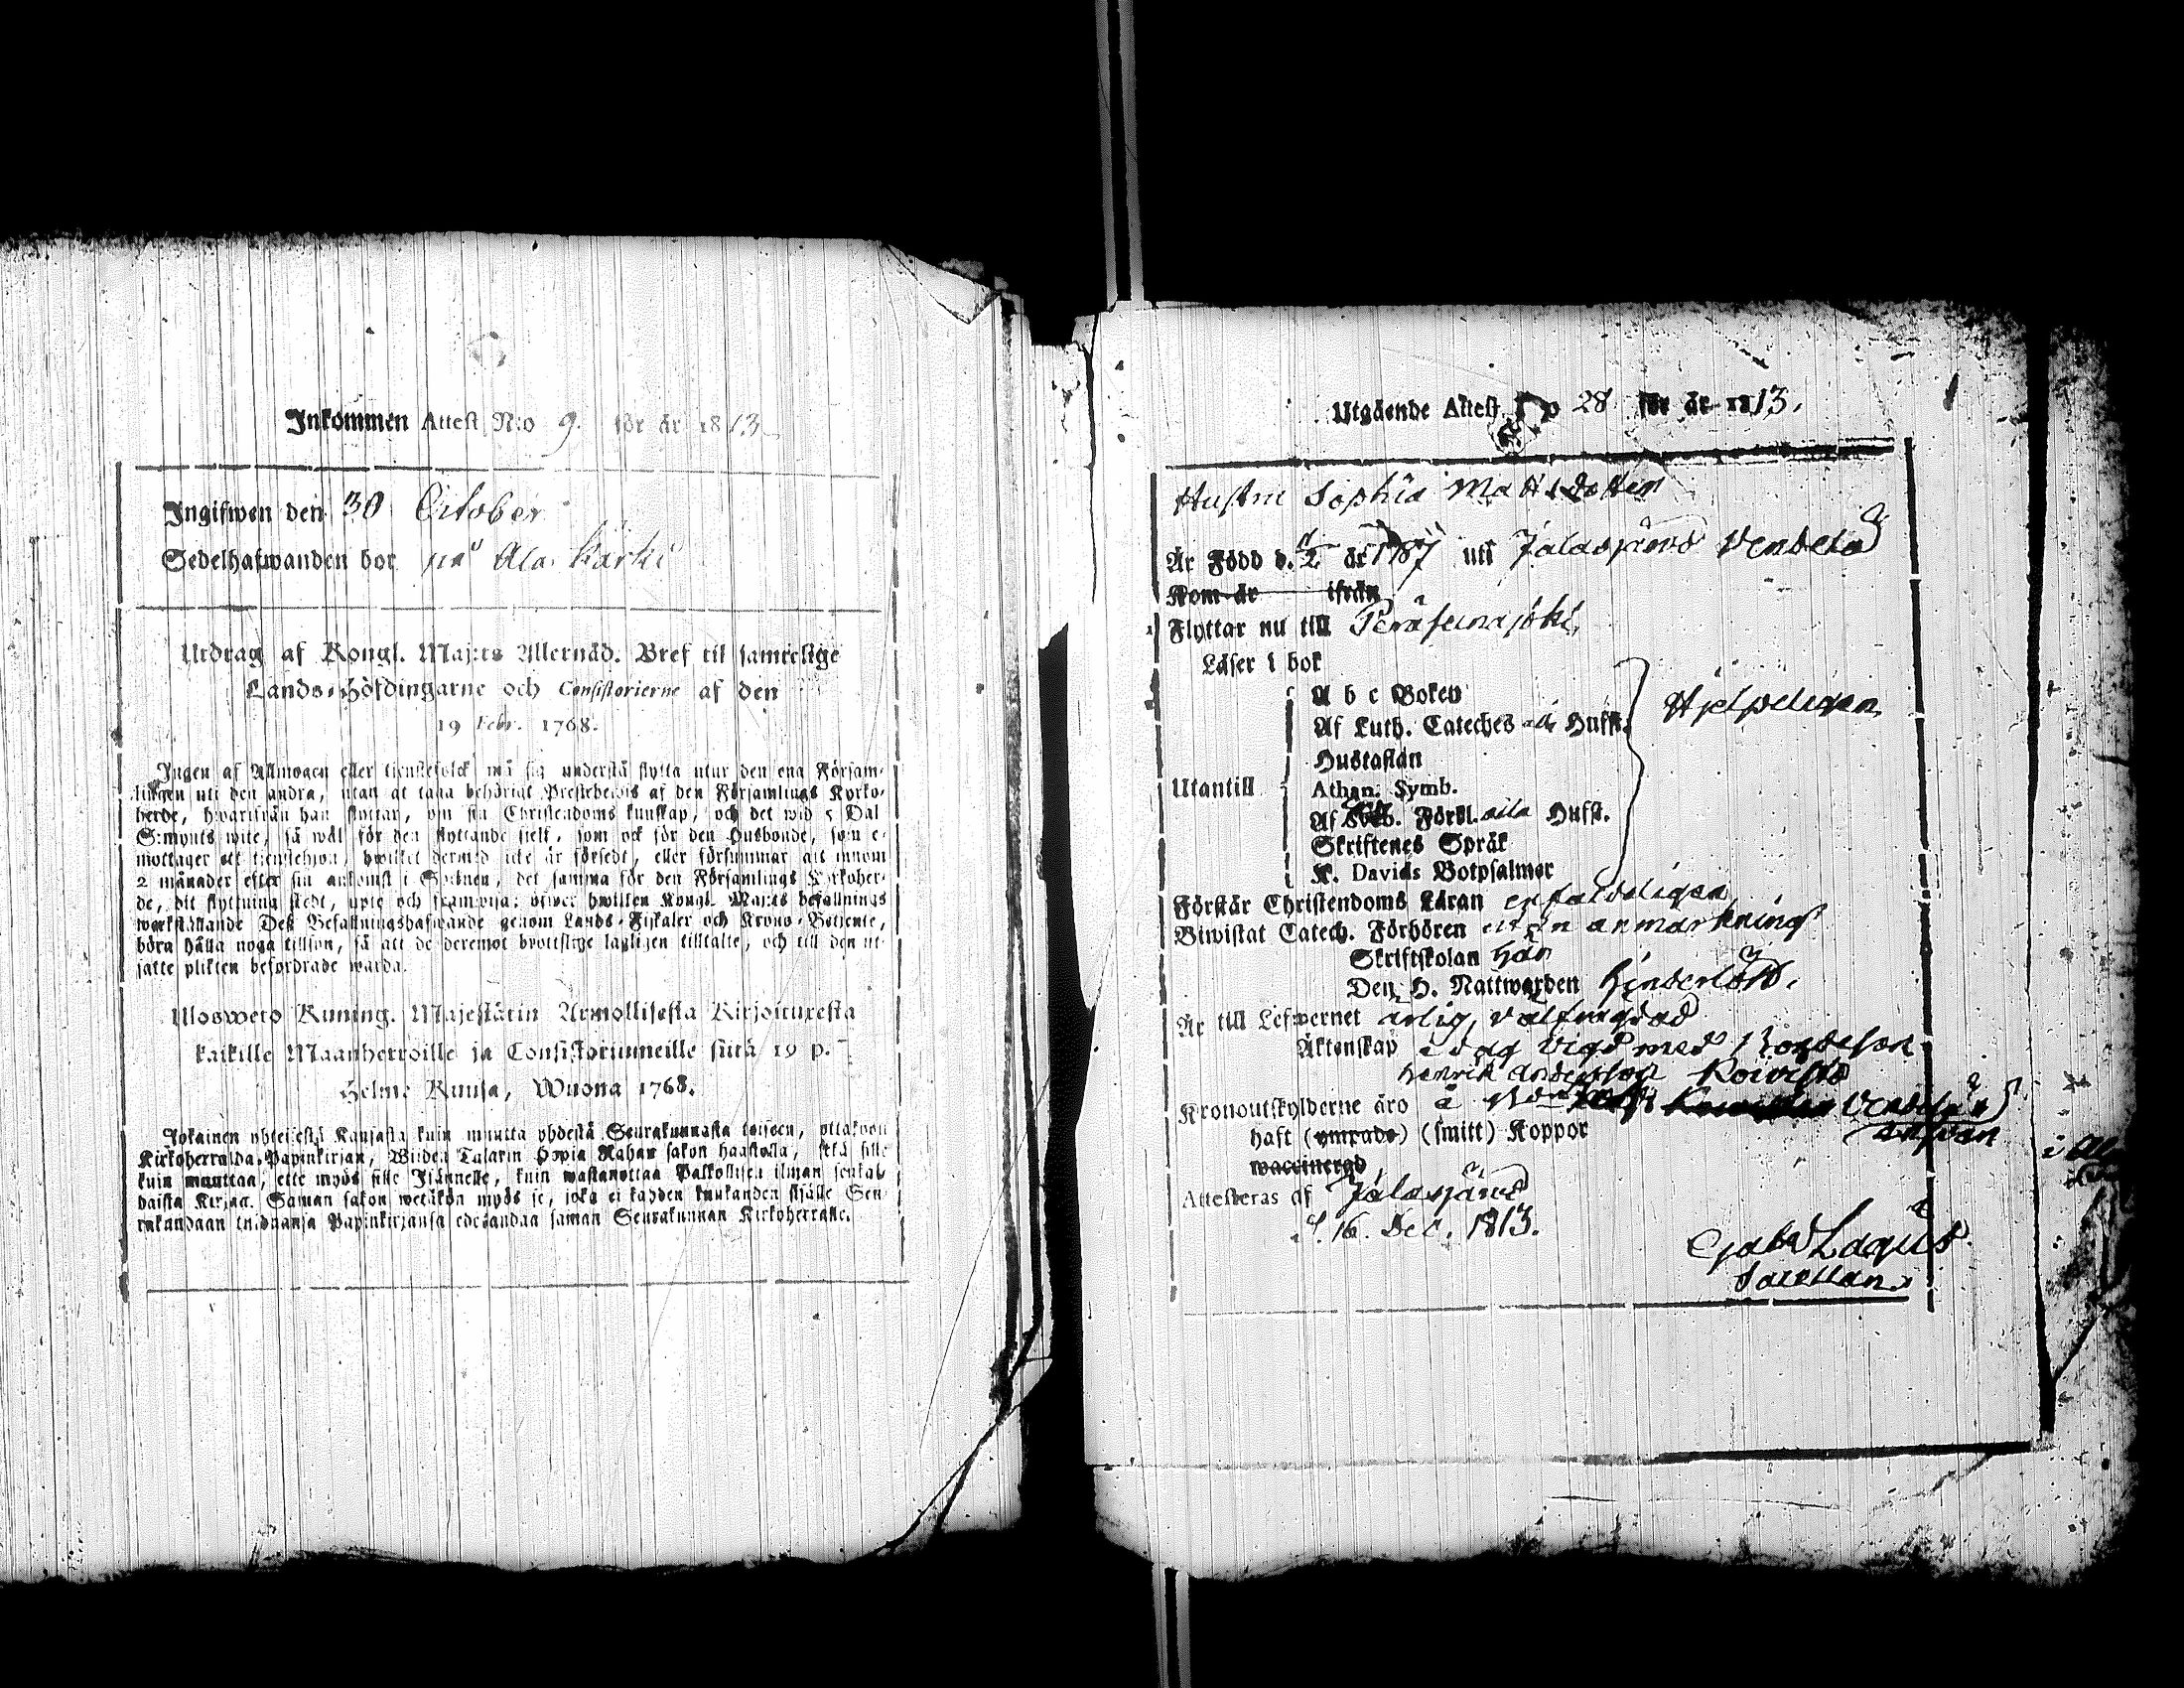 Inkommen Attest N:o 9. för år 1813
Ingifwen den 30 October
Sedelhafwanden bor på Ala Kärki
Utdrag af Kongl. Maj:ts Allernåd. Bref til samtelige
Lands-Höfdingarne och Consistorierne af den
19 Febr. 1768.
Ingen af Allmogen eller tienstefolck må sig understå flytta utur den ena Försam-
lingen uti den andra, utan at taga behörigt Prestebewis af den Församlings Kyrko-
herde, hwarifrån han flyttar, om sin Christendoms kunskap, och det wid 5 Dal.
S:mynts wite, så wäl för den flyttande sielf, som ock för den Husbonde, som e-
mottager ett tienstehjon, hwilket dermed icke är försedt, eller försummar att innom
2 månader efter sin ankomst i Socknen, det samma för den Församlings Kyrkoher-
de, dit flyttning skedt, upte och framwisa; öfwer hwilken Kongl. Maj:ts befallnings
werkställande Dess Befallningshafwande genom Lands-Fiskaler och Krono-Betiente,
böra hålla noga tillsyn, så att de deremot brottslige lagligen tilltalte, och till den ut-
satte plikten befordrade warda.
Ulosweto Kuning. Majestätin Armollisesta Kirjoituresta
kaikille Maanherroille ja Consistoriumeille siitä 19 p.
Helme Kuusa, Wuona 1768.
Jokainen yhteisestä Kansasta kuin muutta yhdestä Seurakunnasta toiseen, ottakoon
Kirkoherralda Papinkirjan, Wiiden Talarin Hopia Rahan sakon haastolla, sekä sille
kuin muuttaa, ette myös sille Isännelle, kuin wastanottaa Palkollisen ilman senkal-
daista Kirjaa. Saman sakon wetäkön myös se, joka ei kahden kuukanden sisälle Seu-
rakundaan tulduansa Papinkirjansa edesandaa saman Seurakunnan Kirkoherralle.
Utgående Attest 28 för år 1813.
Hustru Sophia Mattsdotter
Är Född d. 4/2 år 1787 uti Jalasjärvi Vendelä
Kom år ifrån
Flyttar nu till Peräseinäjoki,
Läser i bok
A b c Boken
Af Luth. Cateches alla Hufst.
Hustaflan
Utantill Athan. Symb.
Af Förkl. alla Hufst.
Skriftenes Språk
K. Davids Botpsalmer
Hjelpeligen
Förstår Christendoms Läran enfaldeligen
Biwistat Catech. Förhören utan anmärkning
Skriftskolan här
Den H. Nattwarden hinderlöst.
Är till Lefwernet ärlig, välfrägdad
Äktenskap i dag vigd med Bondeson
Henrik Andersson Koivisto
Kronoutskylderne äro å Vendelä
haft (ympade) (smitt) Koppor
waccinerad
Attesteras af Jalasjärvi
d. 16. Dec. 1813.
Gabr Lagus
Sacellan.